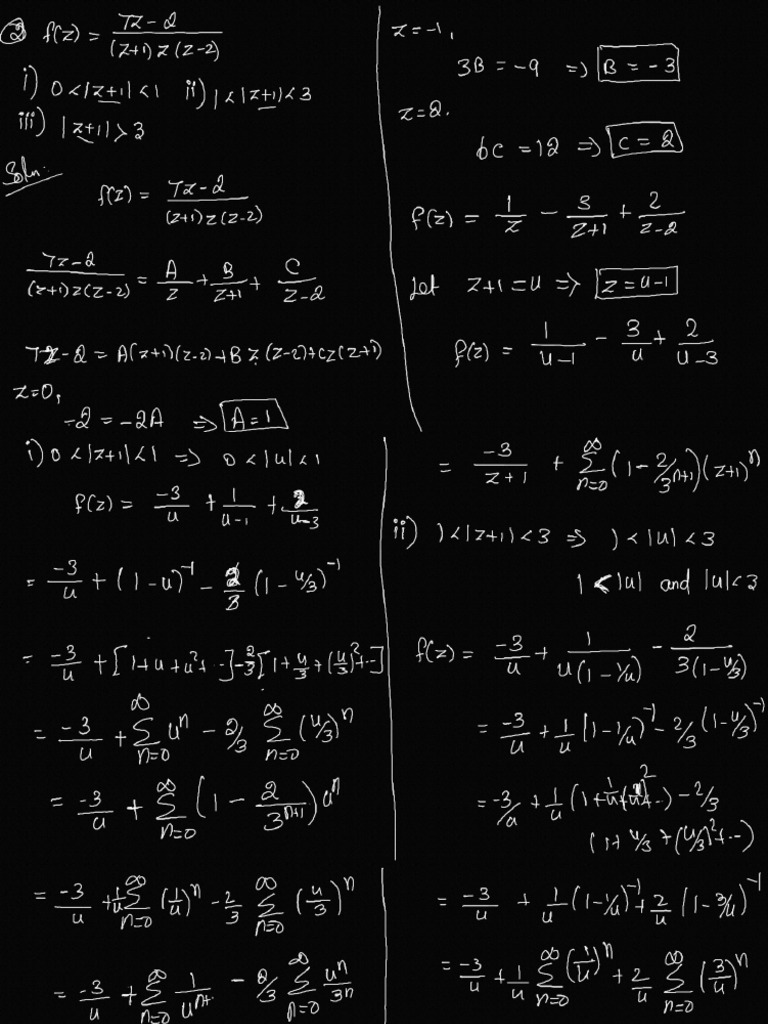 ② f(z) = (7z-2)/((z+1) z (z-2))
i) 0<|z+1|<1 ii) 1<|z+1|<3
iii) |z+1|>3
Soln:
f(z) = (7z-2)/((z+1)z(z-2))
(7z-2)/((z+1)z(z-2)) = A/z + B/(z+1) + C/(z-2)
7z-2 = A(z+1)(z-2)+Bz(z-2)+cz(z+1)
z=0,
-2 = -2A => A=1
z=-1,
3B = -9 => B = -3
z=2.
6c = 12 => c = 2
f(z) = 1/z - 3/(z+1) + 2/(z-2)
Let z+1=u => z=u-1
f(z) = 1/(u-1) - 3/u + 2/(u-3)
i) 0<|z+1|<1 => 0<|u|<1
f(z) = -3/u + 1/(u-1) + 2/(u-3)
= -3/u + (1-u)^-1 - 2/3 (1-u/3)^-1
= -3/u + [1+u+u²+..] - 2/3 [1+u/3+(u/3)²+..]
= -3/u + ∑_{n=0}^∞ u^n - 2/3 ∑_{n=0}^∞ (u/3)^n
= -3/u + ∑_{n=0}^∞ (1 - 2/3^{n+1}) u^n
= -3/(z+1) + ∑_{n=0}^∞ (1-2/3^{n+1})(z+1)^n
ii) 1<|z+1|<3 => 1<|u|<3
1<|u| and |u|<3
f(z) = -3/u + 1/(u(1-1/u)) - 2/(3(1-u/3))
= -3/u + 1/u (1-1/u)^-1 - 2/3 (1-u/3)^-1
= -3/u + 1/u (1+1/u+(1/u)²+..) - 2/3
(1+u/3+(u/3)²+..)
= -3/u + 1/u ∑_{n=0}^∞ (1/u)^n - 2/3 ∑_{n=0}^∞ (u/3)^n
= -3/u + ∑_{n=0}^∞ 1/u^{n+} - 2/3 ∑_{n=0}^∞ u^n/3n
= -3/u + 1/u (1-1/u)^-1 + 2/u (1-3/u)^-1
= -3/u + 1/u ∑_{n=0}^∞ (1/u)^n + 2/u ∑_{n=0}^∞ (3/u)^n